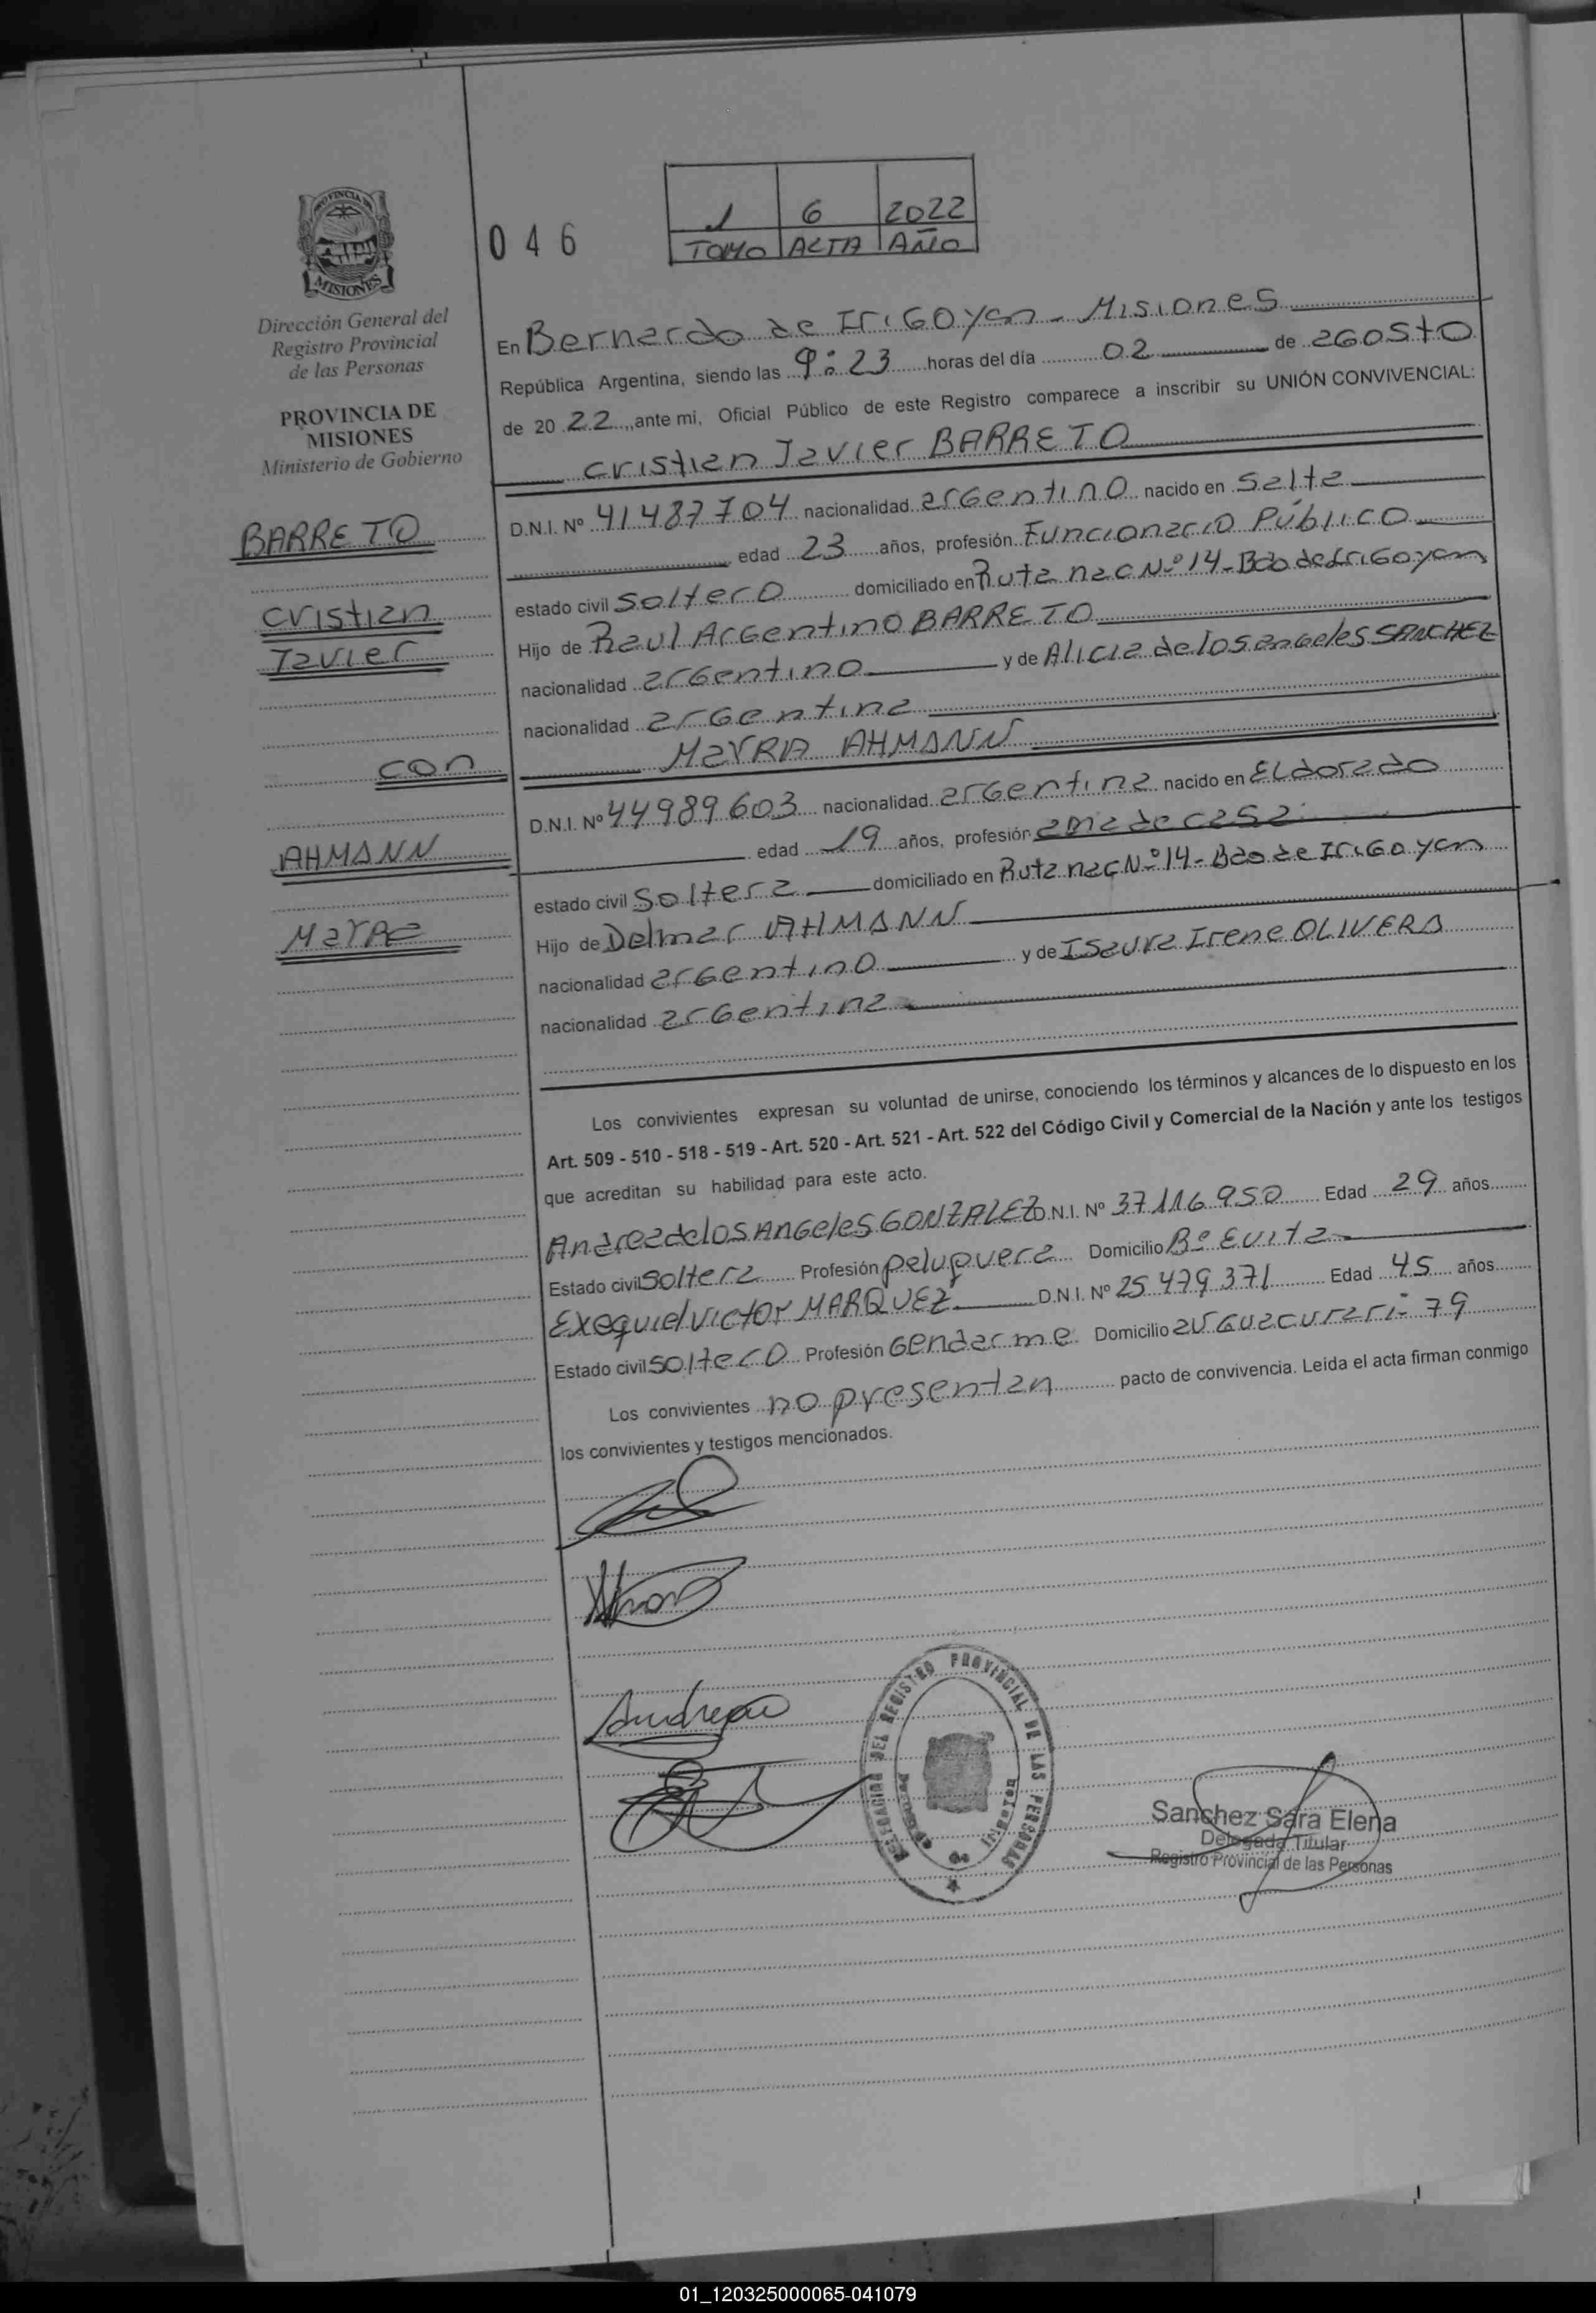 PROVINCIA DE
MISIONES
Dirección General del
Registro Provincial
de las Personas
PROVINCIA DE
MISIONES
Ministerio de Gobierno
BARRETO
Cristian
Javier
con
AHMANN
Mayra
046
1 6 2022
TOMO ACTA AÑO
En Bernardo de Irigoyen - Misiones
República Argentina, siendo las 9:23 horas del día 02 de agosto
de 20 22, ante mi, Oficial Público de este Registro comparece a inscribir su UNIÓN CONVIVENCIAL:
Cristian Javier BARRETO
D.N.I. Nº 41487704 nacionalidad argentino nacido en Salta
edad 23 años, profesión Funcionario Público
estado civil Soltero domiciliado en Ruta nac Nº 14 - Bdo de Irigoyen
Hijo de Raul Argentino BARRETO
nacionalidad argentino y de Alicia de los angeles SANCHEZ
nacionalidad argentina
MaYRA AHMANN
D.N.I. Nº 44989603 nacionalidad argentina nacido en Eldorado
edad 19 años, profesión ama de casa
estado civil Soltera domiciliado en Ruta nac Nº 14 - Bdo de Irigoyen
Hijo de Delmar AHMANN
nacionalidad argentino y de Isaura Irene OLIVERA
nacionalidad argentina
Los convivientes expresan su voluntad de unirse, conociendo los términos y alcances de lo dispuesto en los
Art. 509 - 510 - 518 - 519 - Art. 520 - Art. 521 - Art. 522 del Código Civil y Comercial de la Nación y ante los testigos
que acreditan su habilidad para este acto.
Andrea de los Angeles GONZALEZ D.N.I. Nº 37116950 Edad 29 años
Estado civil Soltera Profesión peluquera Domicilio Bº Evita
Exequiel Victor MARQUEZ D.N.I. Nº 25479371 Edad 45 años
Estado civil Soltero Profesión Gendarme Domicilio av Guacurari - 79
Los convivientes no presentan pacto de convivencia. Leída el acta firman conmigo
los convivientes y testigos mencionados.
Andrea
DELEGACION DEL REGISTRO PROVINCIAL DE LAS PERSONAS
Sanchez Sara Elena
Delegada Titular
Registro Provincial de las Personas
01_120325000065-041079